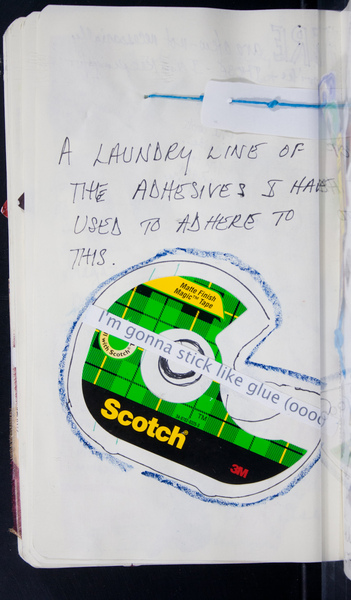 A LAUNDRY LINE OF
THE ADHESIVES I HAVE
USED TO ADHERE TO
THIS.
Matte Finish
Magic™ Tape
I'm gonna stick like glue (oooo
with Scotch
Scotch
TM
3M